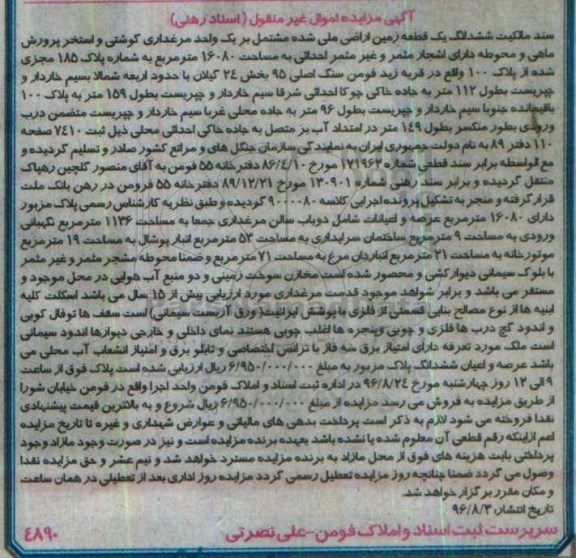 آگهی مزایده اموال غیر منقول (اسناد رهنی)
سند مالکیت ششدانگ یک قطعه زمین اراضی ملی شده مشتمل بر یک واحد مرغداری گوشتی و استخر پرورش
ماهی و محوطه دارای اشجار مثمر و غیر مثمر احداثی به مساحت ۱۶۰۸۰ مترمربع به شماره پلاک ۱۸۵ مجزی
شده از پلاک ۱۰۰ واقع در قریه زید فومن سنگ اصلی ۹۵ بخش ۲۴ گیلان با حدود اربعه شمالا بسیم خاردار و
چپربست بطول ۱۱۲ متر به جاده خاکی جوکا احداثی شرقا سیم خاردار و چپربست بطول ۱۵۹ متر به پلاک ۱۰۰
باقیمانده جنوبا سیم خاردار و چپربست بطول ۹۶ متر به جاده محلی غربا سیم خاردار و چپربست متضمن درب
ورودی بطور منکسر بطول ۱۴۹ متر در امتداد آب بر متصل به جاده خاکی احداثی محلی ذیل ثبت ۷۴۱۰ صفحه
۱۱۰ دفتر ۸۹ به نام دولت جمهوری ایران به نمایندگی سازمان جنگل های و مراتع کشور صادر و تسلیم گردیده و
مع الواسطه برابر سند قطعی شماره ۱۷۱۹۶۲ مورخ ۸۶/۴/۱۰ دفترخانه ۵۵ فومن به آقای منصور گلچین رهپاک
منتقل گردیده و برابر سند رهنی شماره ۱۳۰۹۰۱ مورخ ۸۹/۱۲/۲۱ دفترخانه ۵۵ فومن در رهن بانک ملت
قرار گرفته و منجر به تشکیل پرونده اجرایی کلاسه ۹۰۰۰۰۸۰ گردیده و طبق نظریه کارشناس رسمی پلاک مزبور
دارای ۱۶۰۸۰ مترمربع عرصه و اعیانات شامل دوباب سالن مرغداری جمعا به مساحت ۱۱۳۶ مترمربع نگهبانی
ورودی به مساحت ۹ مترمربع ساختمان سرایداری به مساحت ۵۳ مترمربع انبار پوشال به مساحت ۱۹ مترمربع
موتورخانه به مساحت ۲۱ مترمربع انباردان مرغ به مساحت ۷۱ مترمربع و ضمنا محوطه مشجر مثمر و غیر مثمر
با بلوک سیمانی دیوارکشی و محصور شده است مخازن سوخت زمینی و دو منبع آب هوایی در محل موجود و
مستقر می باشد و برابر شواهد موجود قدمت مرغداری مورد ارزیابی بیش از ۱۵ سال می باشد اسکلت کلیه
ابنیه ها از نوع مصالح بنایی قسمتی از فلزی با پوشش ایرانیت (ورق آزبست سیمانی) است سقف ها توفال کوبی
و اندود گچ درب ها فلزی و چوبی و پنجره ها اغلب چوبی هستند نمای داخلی و خارجی دیوارها اندود سیمانی
است ملک مورد تعرفه دارای امتیاز برق سه فاز با ترانس اختصاصی و تابلو برق و امتیاز انشعاب آب محلی می
باشد عرصه و اعیان ششدانگ پلاک مزبور به مبلغ ۶/۹۵۰/۰۰۰/۰۰۰ ریال ارزیابی شده است پلاک فوق از ساعت
۹ الی ۱۲ روز چهارشنبه مورخ ۹۶/۸/۲۴ در اداره ثبت اسناد و املاک فومن واحد اجرا واقع در فومن خیابان شورا
از طریق مزایده به فروش می رسد مزایده از مبلغ ۶/۹۵۰/۰۰۰/۰۰۰ ریال شروع و به بالاترین قیمت پیشنهادی
نقدا فروخته می شود لازم به ذکر است پرداخت بدهی های مالیاتی و عوارض شهرداری و غیره تا تاریخ مزایده
اعم ازاینکه رقم قطعی آن معلوم شده یا نشده باشد بعهده برنده مزایده است و نیز در صورت وجود مازاد وجوه
پرداختی بابت هزینه های فوق از محل مازاد به برنده مزایده مسترد خواهد شد و نیم عشر و حق مزایده نقدا
وصول می گردد ضمنا چنانچه روز مزایده تعطیل رسمی گردد مزایده روز اداری بعد از تعطیلی در همان ساعت
و مکان مقرر برگزار خواهد شد.
تاریخ انتشار: ۹۶/۸/۳
سرپرست ثبت اسناد و املاک فومن-علی نصرتی
۴۸۹۰